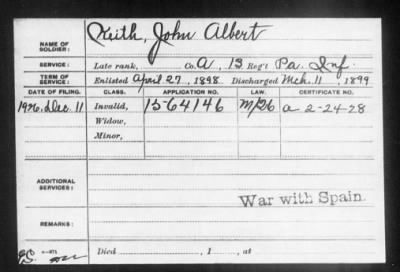 NAME OF SOLDIER: Keith, John Albert
SERVICE: Late rank, Co. A, 13 Reg't Pa. Inf.
TERM OF SERVICE: Enlisted April 27, 1898. Discharged Mch. 11, 1899
DATE OF FILING. CLASS. APPLICATION NO. LAW. CERTIFICATE NO.
1926, Dec. 11 Invalid, 15-64146 M/26 a 2-24-28
Widow,
Minor,
ADDITIONAL SERVICES:
War with Spain.
REMARKS:
Died , 1 , at